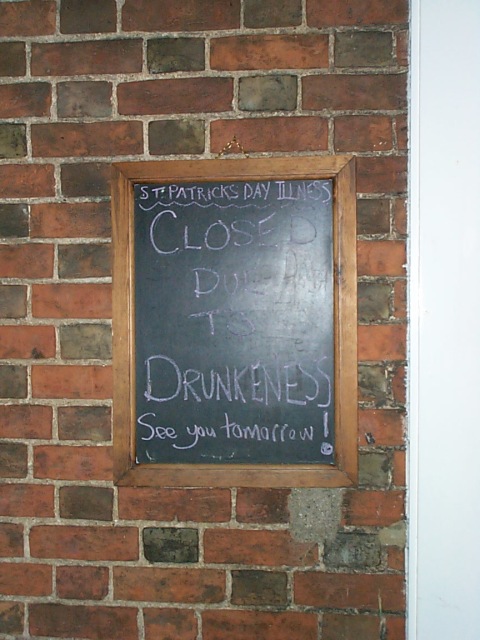 ST. PATRICKS DAY ILLNESS
CLOSED
DUE
TO
DRUNKENESS
See you tomorrow!